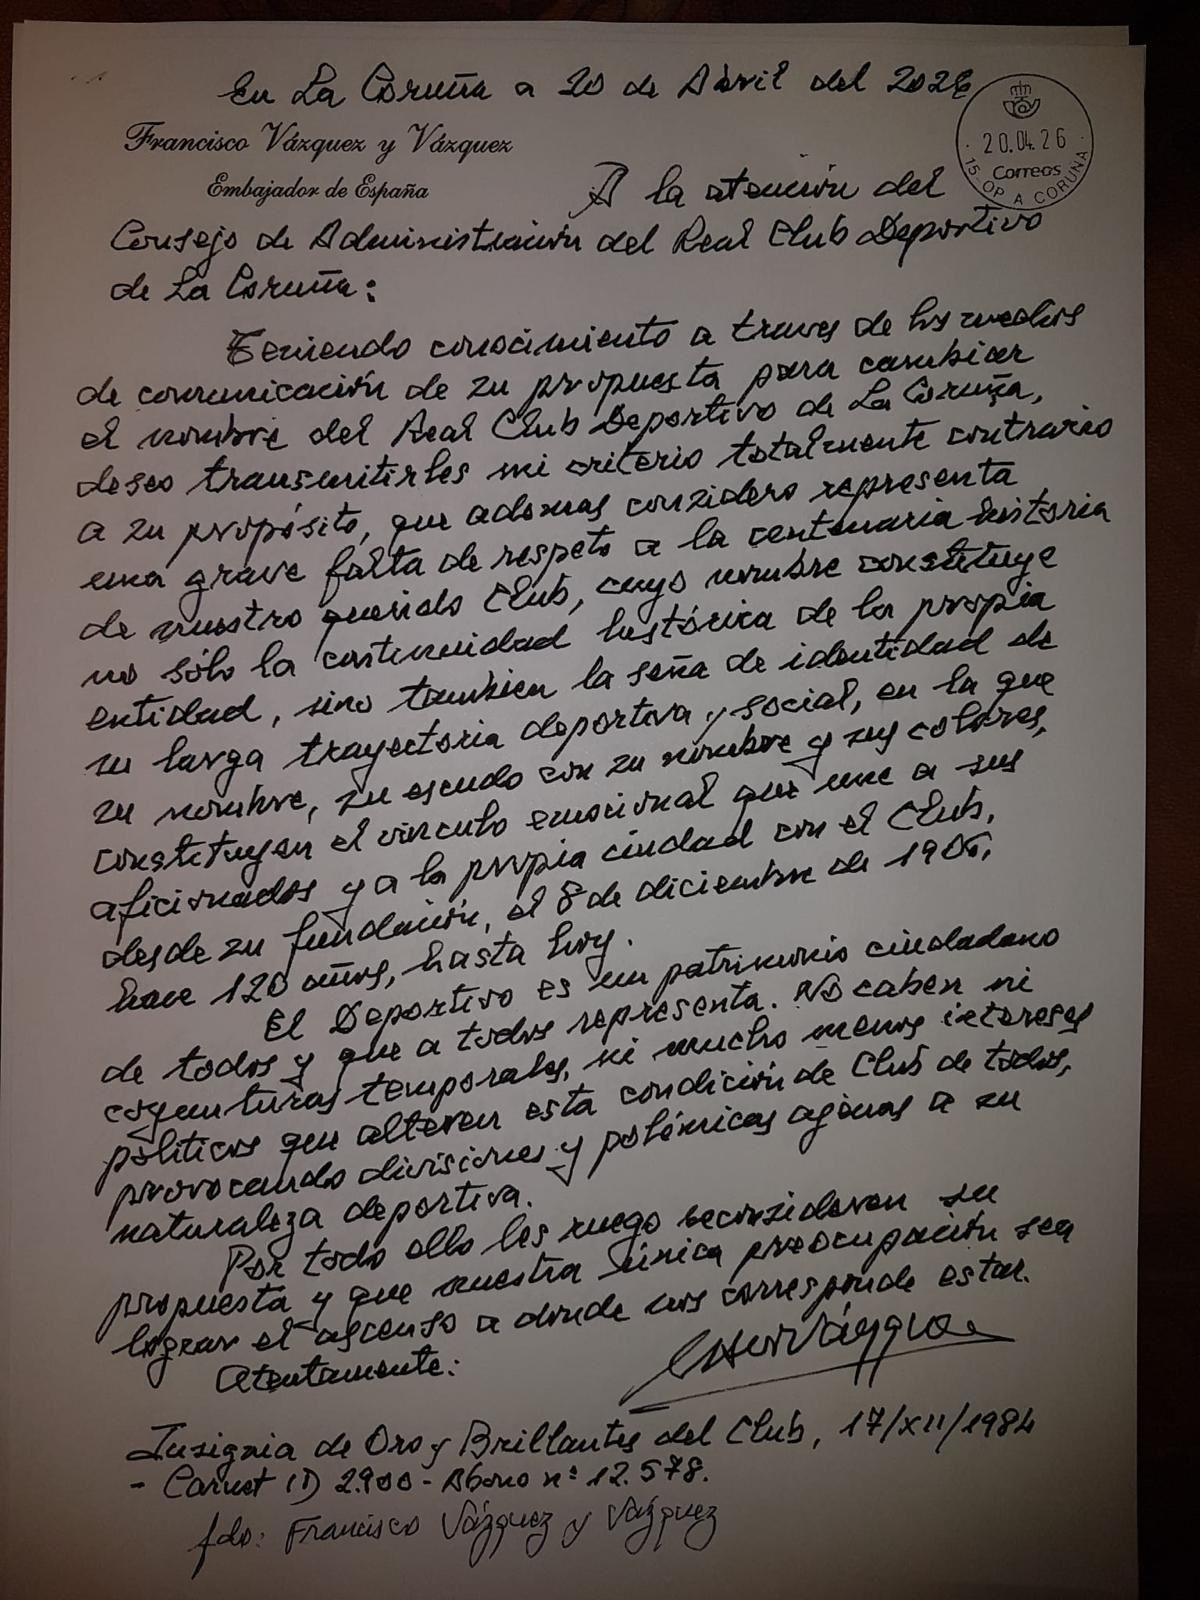 En La Coruña a 20 de Abril del 2026
Francisco Vázquez y Vázquez
Embajador de España
20.04.26
Correos
15 · OP. A CORUÑA
A la atención del
Consejo de Administración del Real Club Deportivo
de La Coruña:
Teniendo conocimiento a traves de los medios
de comunicación de su propuesta para cambiar
el nombre del Real Club Deportivo de La Coruña,
deseo transmitirles mi criterio totalmente contrario
a su propósito, que ademas considero representa
una grave falta de respeto a la centenaria historia
de nuestro querido Club, cuyo nombre constituye
no sólo la continuidad histórica de la propia
entidad, sino tambien la seña de identidad de
su larga trayectoria deportiva y social, en la que
su nombre, su escudo con su nombre y sus colores,
constituyen el vinculo emocional que une a sus
aficionados y a la propia ciudad con el Club,
desde su fundación, el 8 de diciembre de 1906,
hace 120 años, hasta hoy.
El Deportivo es un patrimonio ciudadano
de todos y que a todos representa. No caben ni
coyunturas temporales, ni mucho menos intereses
politicos que alteren esta condición de Club de todos,
provocando divisiones y polémicas ajenas a su
naturaleza deportiva.
Por todo ello les ruego reconsideren su
propuesta y que nuestra única preocupación sea
lograr el ascenso a donde nos corresponde estar.
Atentamente:
Insignia de Oro y Brillantes del Club, 17/XII/1984
- Carnet (1) 2.900 - Abono nº 12.578.
fdo: Francisco Vázquez y Vázquez